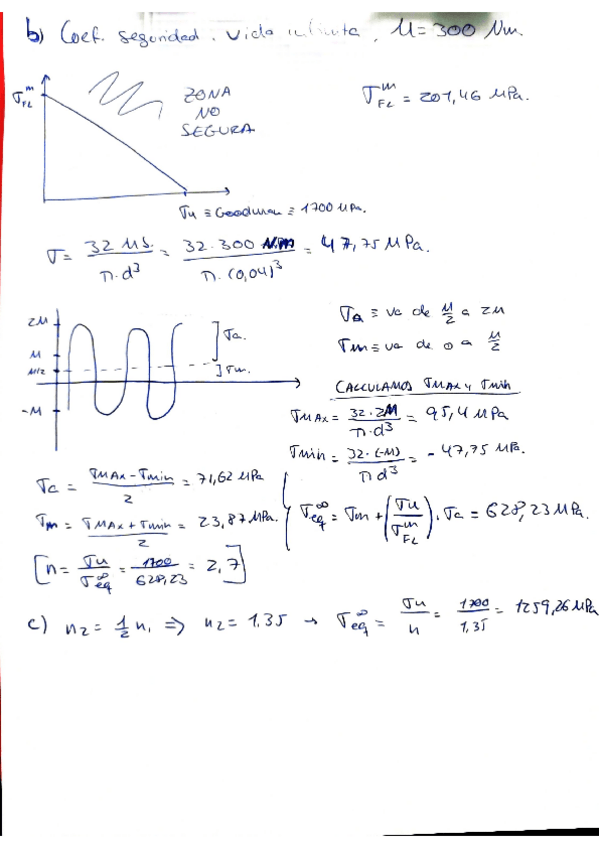 b) Coef. seguridad. Vida infinita. M = 300 Nm.
σ_FL^m
ZONA
NO
SEGURA
σ_FL^m = 201,46 MPa.
σu ≡ Goodman ≡ 1700 MPa.
σ = 32 MS. / π·d³ = 32·300 N.m / π·(0,04)³ = 47,75 MPa.
2M
M
M/2
-M
σa.
σm.
σa ≡ va de M/2 a 2M
σm ≡ va de 0 a M/2
CALCULAMOS σMAX y σmin
σMAX = 32·2M / π·d³ = 95,4 MPa
σmin = 32·(-M) / π d³ = -47,75 MPa.
σa = (σMAX - σmin) / 2 = 71,62 MPa
σm = (σMAX + σmin) / 2 = 23,87 MPa.
σeq^∞ = σm + (σu / σ_FL^m) · σa = 628,23 MPa.
[n = σu / σeq^∞ = 1700 / 628,23 = 2,7]
c) n2 = 1/2 n1 ⇒ n2 = 1,35 → σeq^∞ = σu / n = 1700 / 1,35 = 1259,26 MPa